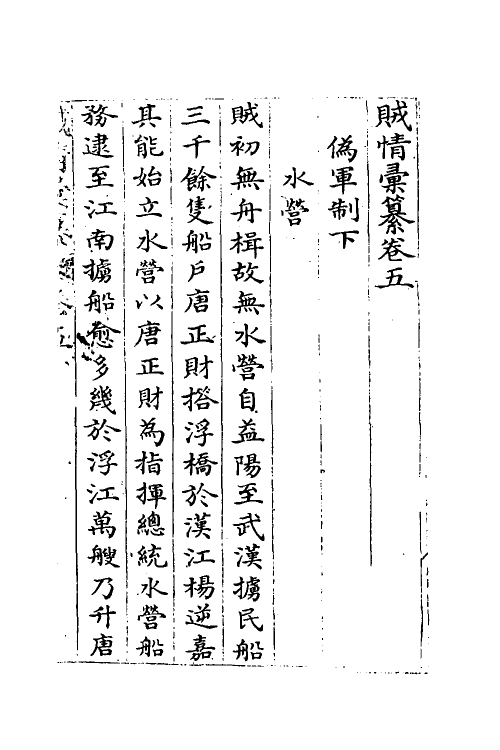 賊情彙纂卷五
僞軍制下
水營
賊初無舟楫故無水營自益陽至武漢擄民船
三千餘隻船戶唐正財搭浮橋於漢江楊逆嘉
其能始立水營以唐正財為指揮總統水營船
務逮至江南擄船愈多幾於浮江萬艘乃升唐